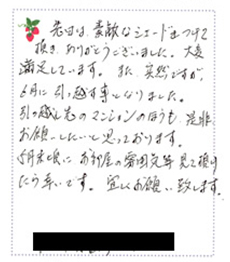 先日は、素敵なシェードをつけて
頂き、ありがとうございました。大変
満足しています。また、突然ですが、
6月に引っ越す事となりました。
引っ越し先のマンションのほうも、是非
お願いしたいと思っております。
5月末頃にお部屋の雰囲気等見て頂け
たら幸いです。宜しくお願い致します。